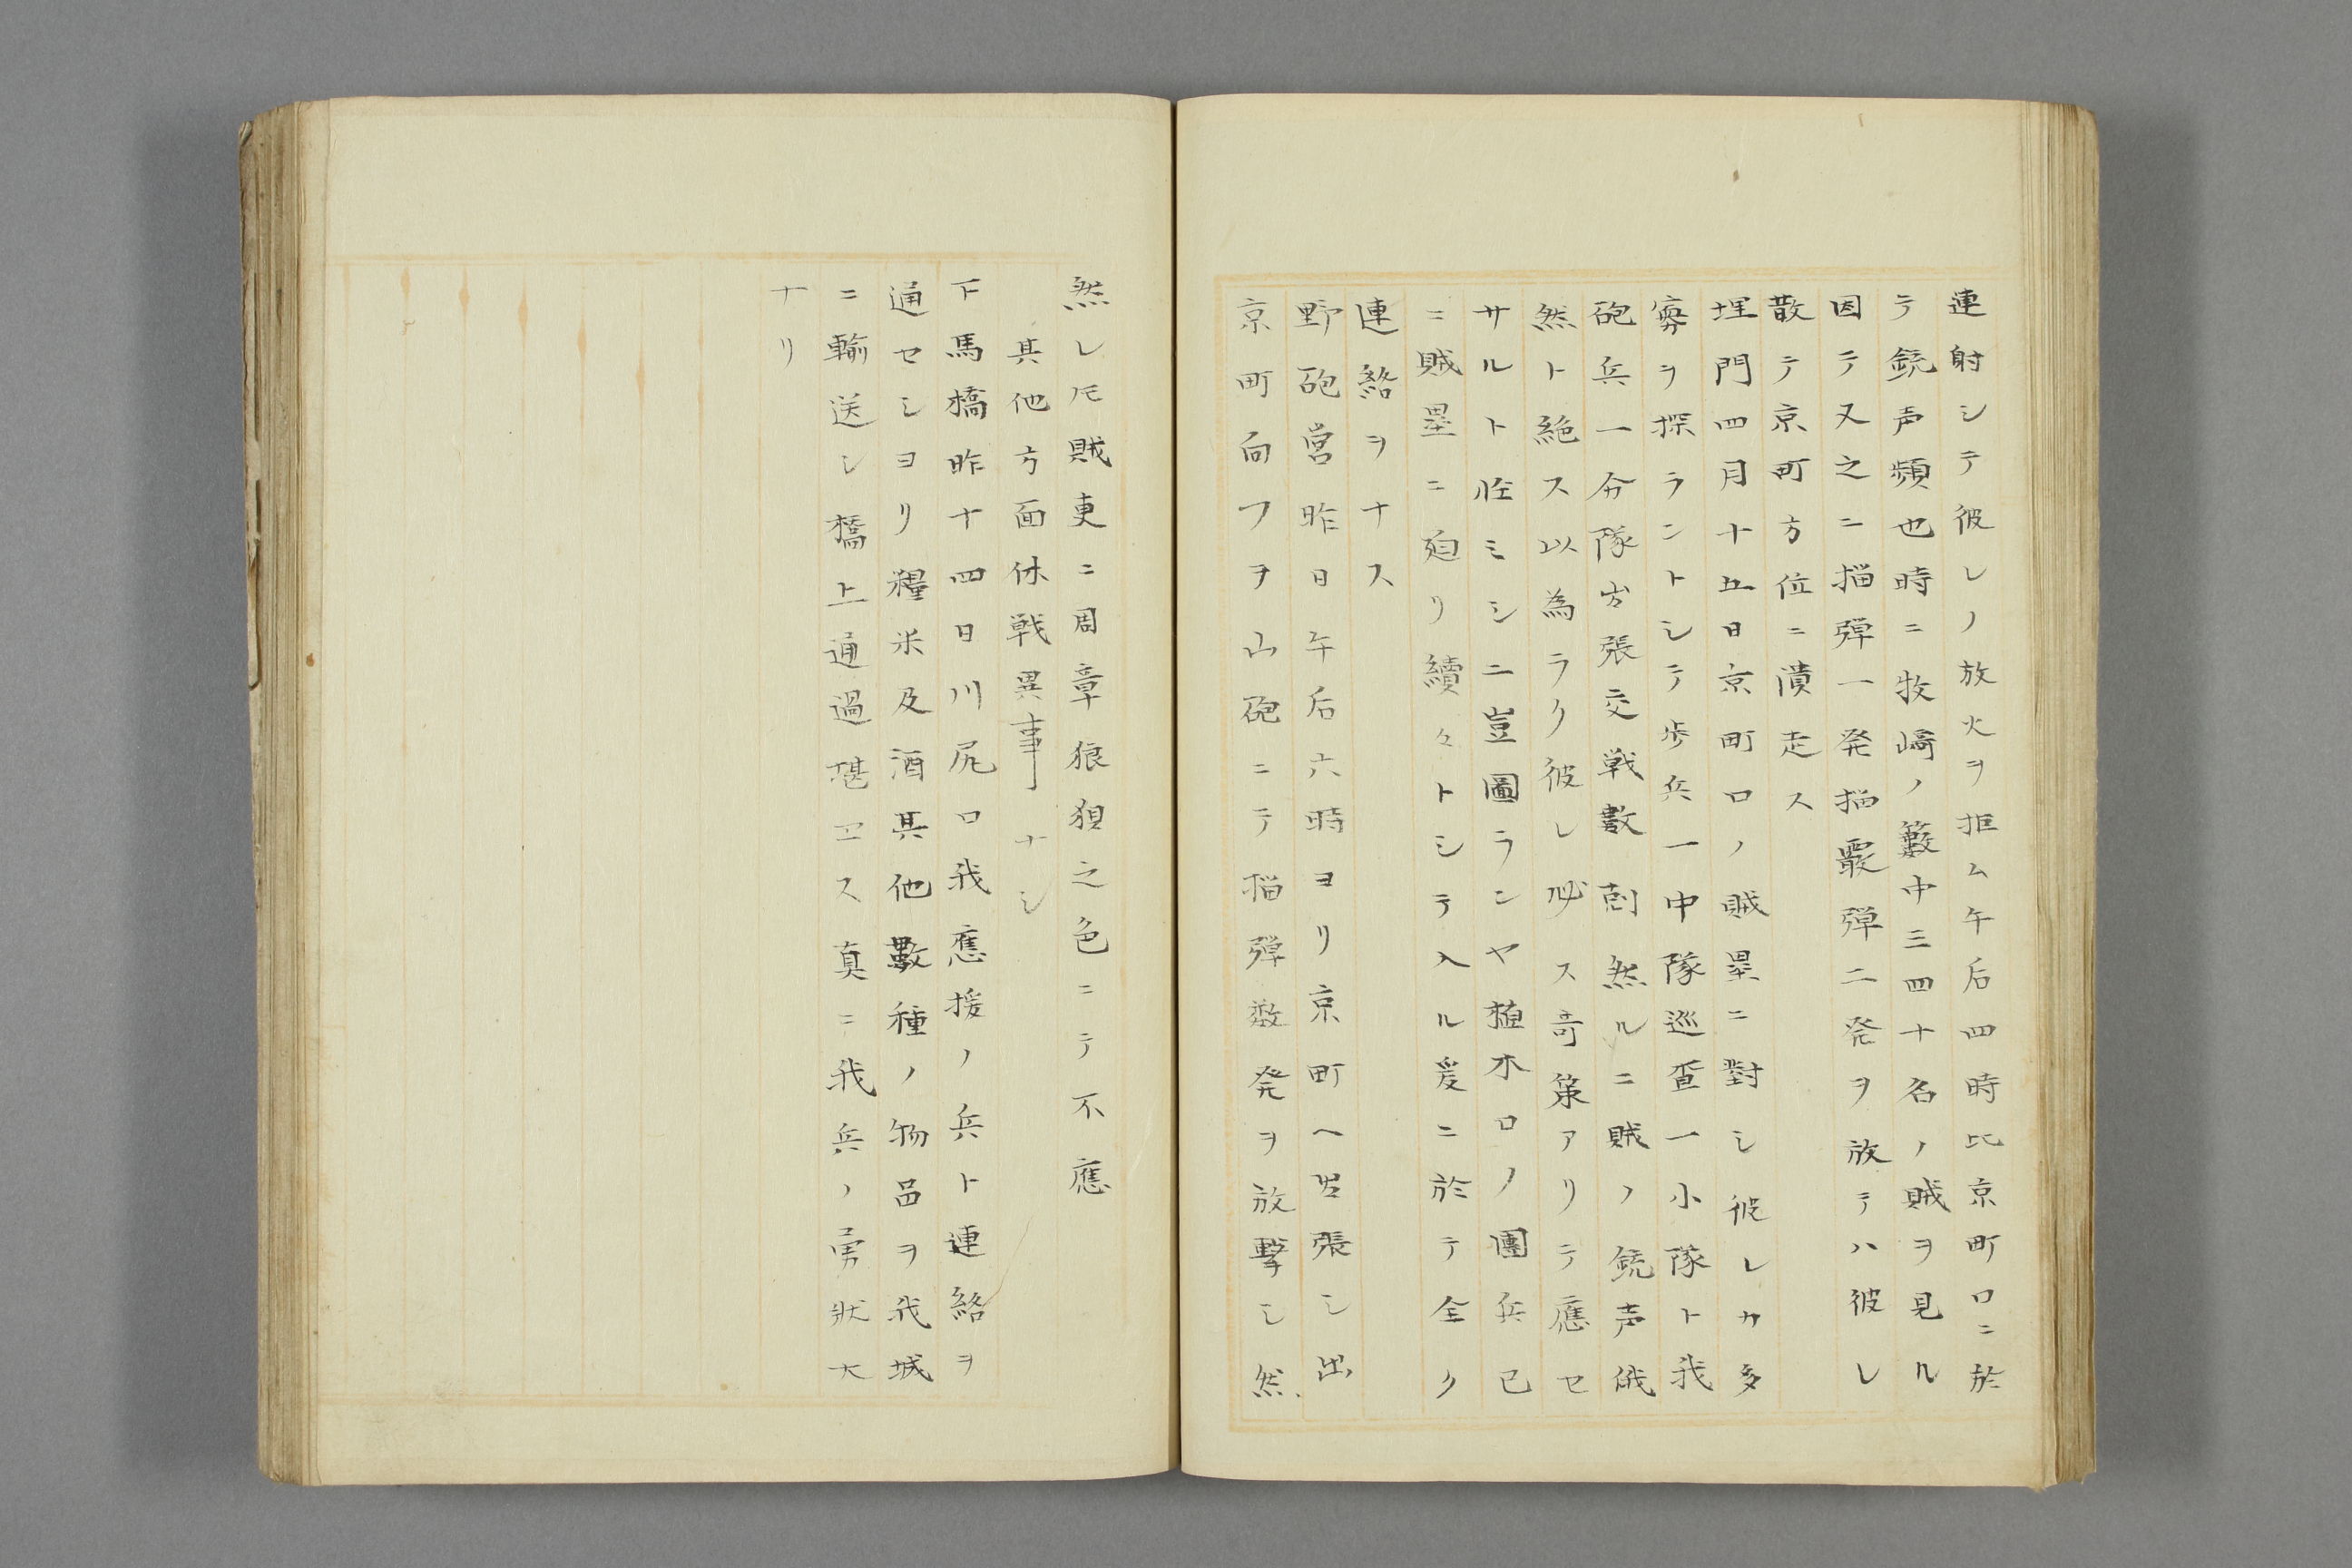 連射シテ彼レノ放火ヲ拒ム午后四時比京町口ニ於
テ銃声頻也時ニ牧崎ノ藪中三四十名ノ賊ヲ見ル
因テ又之ニ榴弾一発榴霰弾二発ヲ放テハ彼レ
散テ京町方位ニ潰走ス
埋門四月十五日京町口ノ賊塁ニ對シ彼レカ多
寡ヲ探ランントシテ歩兵一中隊巡査一小隊ト我
砲兵一分隊出張交戦數刻然ルニ賊ノ銃声俄
然ト絶ス以為ラク彼レ必ス奇策アリテ應セ
サルト怪ミシニ豈圖ランヤ植木口ノ團兵已
ニ賊塁ニ廻リ續々トシテ入ル爰ニ於テ全ク
連絡ヲナス
野砲営昨日午后六時ヨリ京町ヘ出張シ出
京町向フヲ山砲ニテ榴弾数発ヲ放撃シ然
然レ𪜈賊更ニ周章狼狽之色ニテ不應
其他方面休戦異事ナシ
下馬橋昨十四日川尻口我應援ノ兵ト連絡ヲ
通セシヨリ糧米及酒其他數種ノ物品ヲ我城
ニ輸送シ橋上通過堪ヱス真ニ我兵ノ勇狀大
ナリ